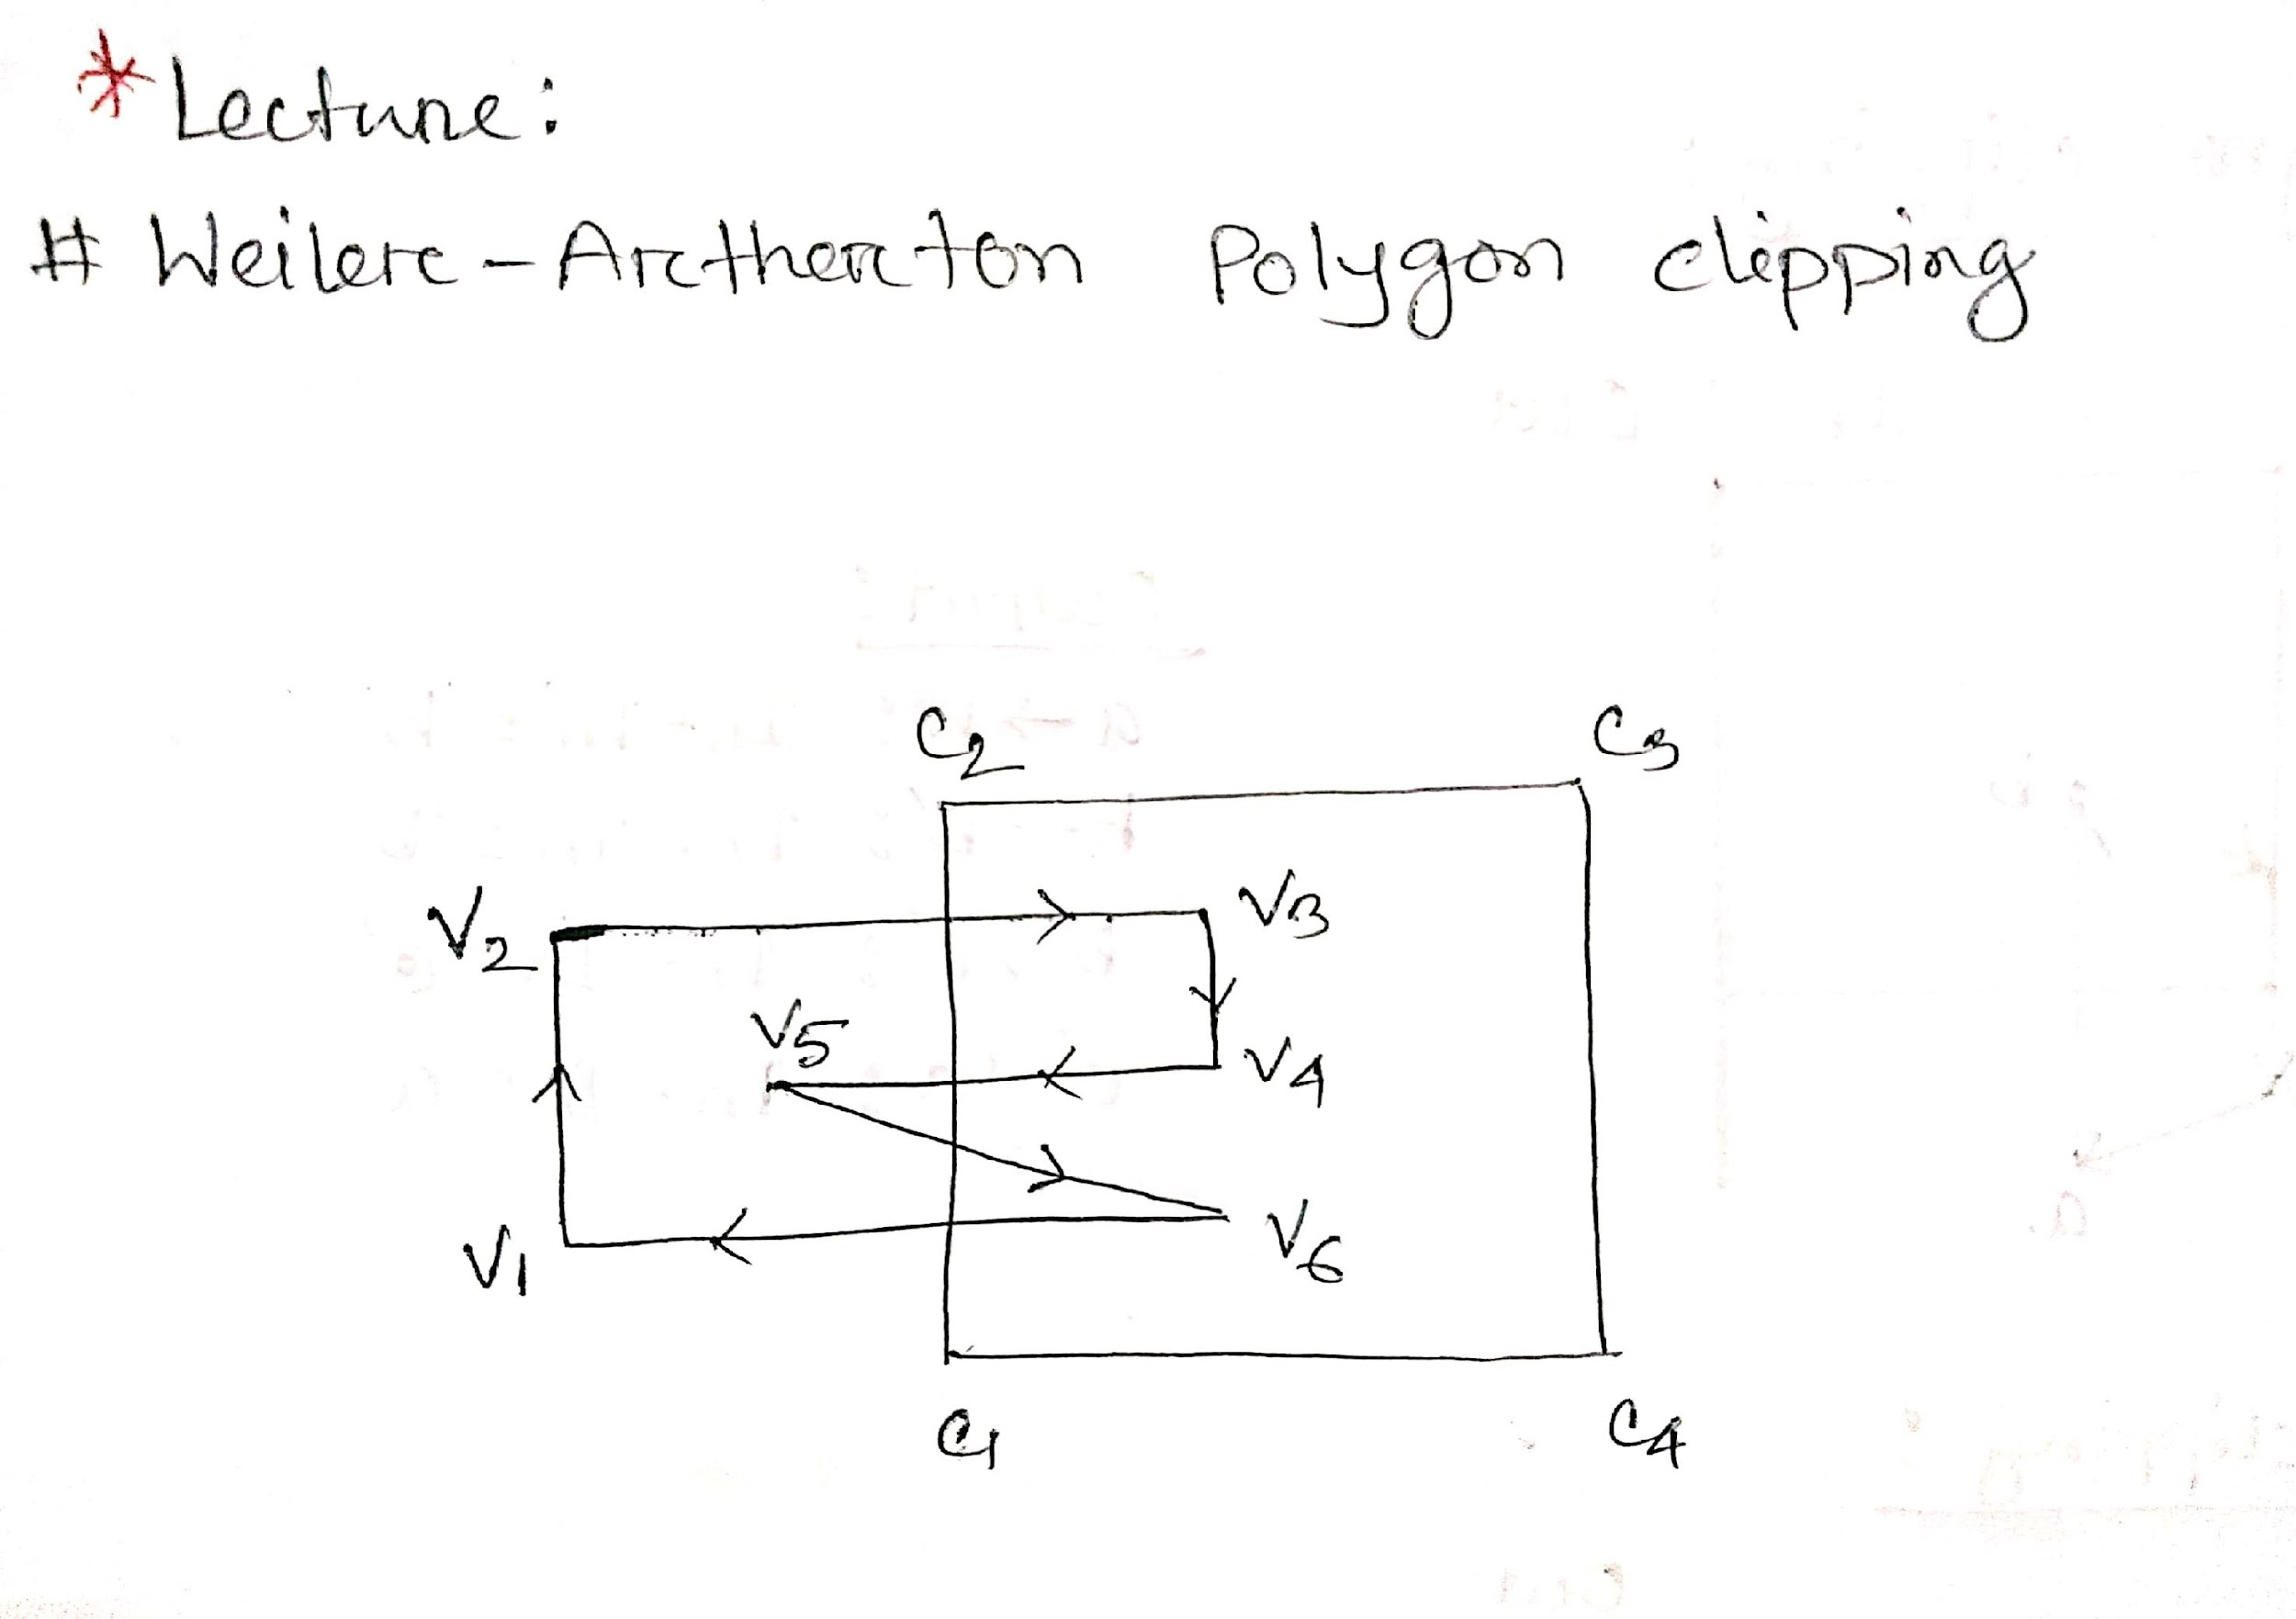 * Lecture:
# Weiler-Artherton Polygon clipping
C2 C3
V2 V3
V5 V4
V1 V6
C1 C4